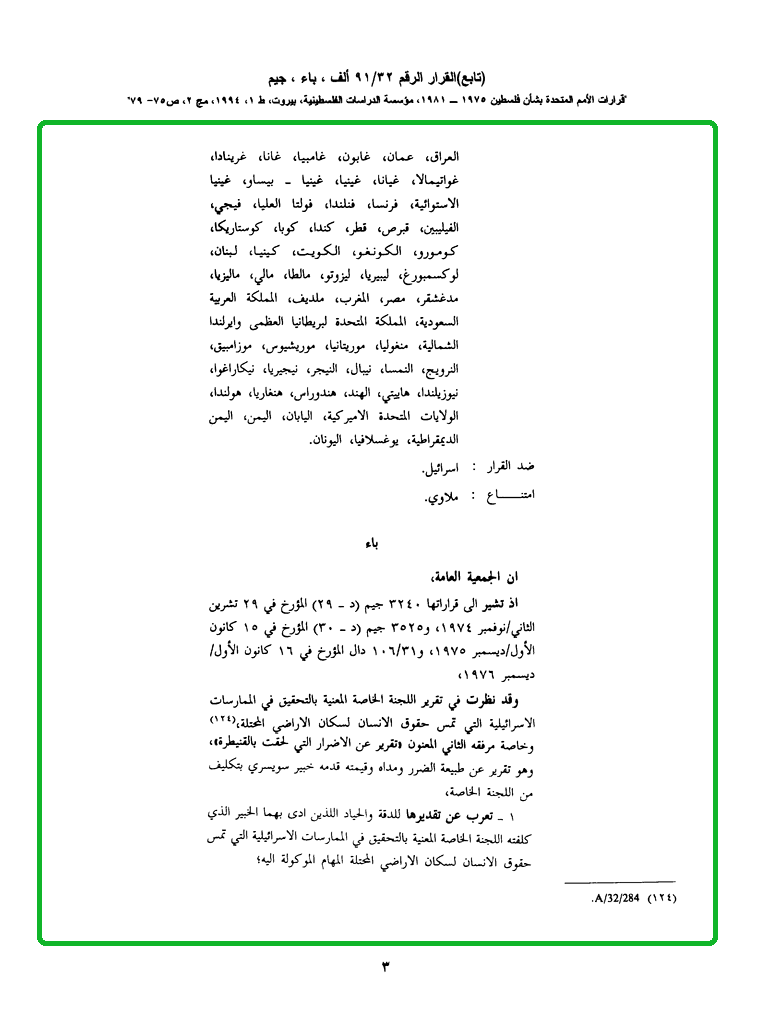 (تابع)القرار الرقم ٩١/٣٢ ألف ، باء ، جيم
"قرارات الأمم المتحدة بشأن فلسطين ١٩٧٥ ــ ١٩٨١، مؤسسة الدراسات الفلسطينية، بيروت، ط ١، ١٩٩٤، مج ٢، ص٧٥- ٧٩"
العراق، عمان، غابون، غامبيا، غانا، غرينادا،
غواتيمالا، غيانا، غينيا، غينيا - بيساو، غينيا
الاستوائية، فرنسا، فنلندا، فولتا العليا، فيجي،
الفيليبين، قبرص، قطر، كندا، كوبا، كوستاريكا،
كومورو، الكونغو، الكويت، كينيا، لبنان،
لوكسمبورغ، ليبيريا، ليزوتو، مالطا، مالي، ماليزيا،
مدغشقر، مصر، المغرب، ملديف، المملكة العربية
السعودية، المملكة المتحدة لبريطانيا العظمى وايرلندا
الشمالية، منغوليا، موريتانيا، موريشيوس، موزامبيق،
النرويج، النمسا، نيبال، النيجر، نيجيريا، نيكاراغوا،
نيوزيلندا، هاييتي، الهند، هندوراس، هنغاريا، هولندا،
الولايات المتحدة الاميركية، اليابان، اليمن، اليمن
الديمقراطية، يوغسلافيا، اليونان.
ضد القرار : اسرائيل.
امتنـــــاع : ملاوي.
باء
ان الجمعية العامة،
اذ تشير الى قراراتها ٣٢٤٠ جيم (د - ٢٩) المؤرخ في ٢٩ تشرين
الثاني/نوفمبر ١٩٧٤، و٣٥٢٥ جيم (د - ٣٠) المؤرخ في ١٥ كانون
الأول/ديسمبر ١٩٧٥، و١٠٦/٣١ دال المؤرخ في ١٦ كانون الأول/
ديسمبر ١٩٧٦،
وقد نظرت في تقرير اللجنة الخاصة المعنية بالتحقيق في الممارسات
الاسرائيلية التي تمس حقوق الانسان لسكان الاراضي المحتلة،(١٢٤)
وخاصة مرفقه الثاني المعنون «تقرير عن الاضرار التي لحقت بالقنيطرة»،
وهو تقرير عن طبيعة الضرر ومداه وقيمته قدمه خبير سويسري بتكليف
من اللجنة الخاصة،
١ - تعرب عن تقديرها للدقة والحياد اللذين ادى بهما الخبير الذي
كلفته اللجنة الخاصة المعنية بالتحقيق في الممارسات الاسرائيلية التي تمس
حقوق الانسان لسكان الاراضي المحتلة المهام الموكولة اليه؛
(١٢٤) A/32/284.
٣